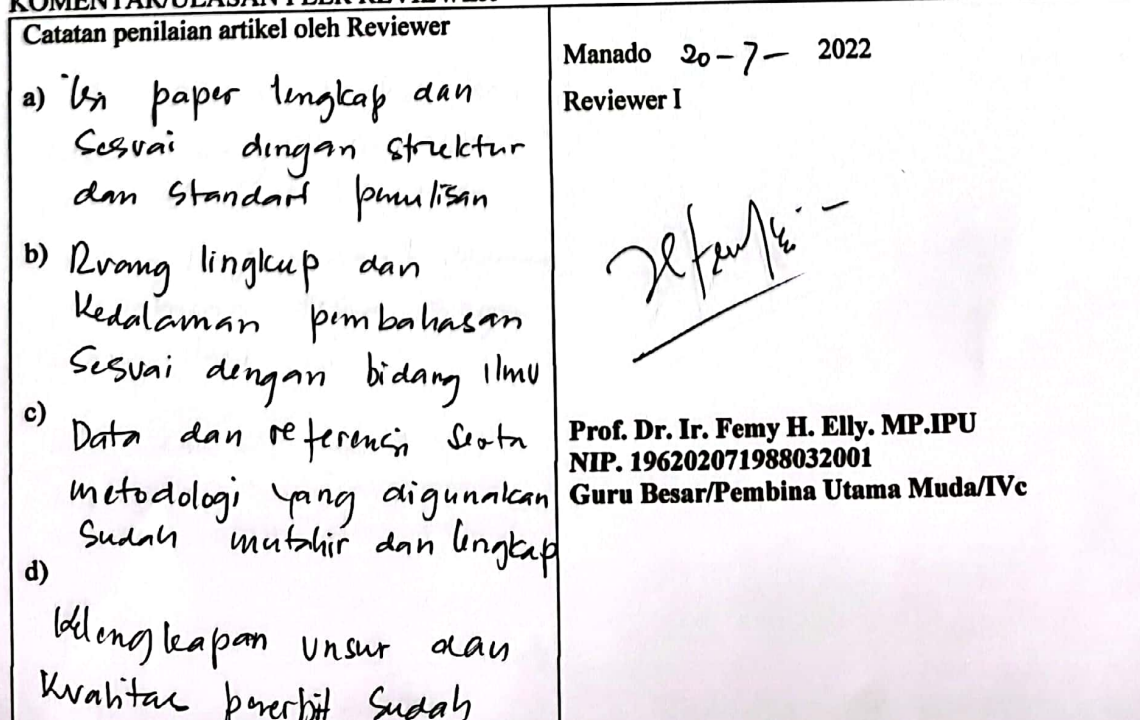 KOMENTAR/ULASAN PEER REVIEWER
Catatan penilaian artikel oleh Reviewer
a) Isi paper lengkap dan
Sesuai dengan struktur
dan Standart penulisan
b) Ruang lingkup dan
Kedalaman pembahasan
Sesuai dengan bidang Ilmu
c)
Data dan referensi serta
metodologi yang digunakan
Sudah mutahir dan lengkap
d)
Kelengkapan unsur dan
Kualitas penerbit Sudah
Manado 20-7- 2022
Reviewer I
Prof. Dr. Ir. Femy H. Elly. MP.IPU
NIP. 196202071988032001
Guru Besar/Pembina Utama Muda/IVc